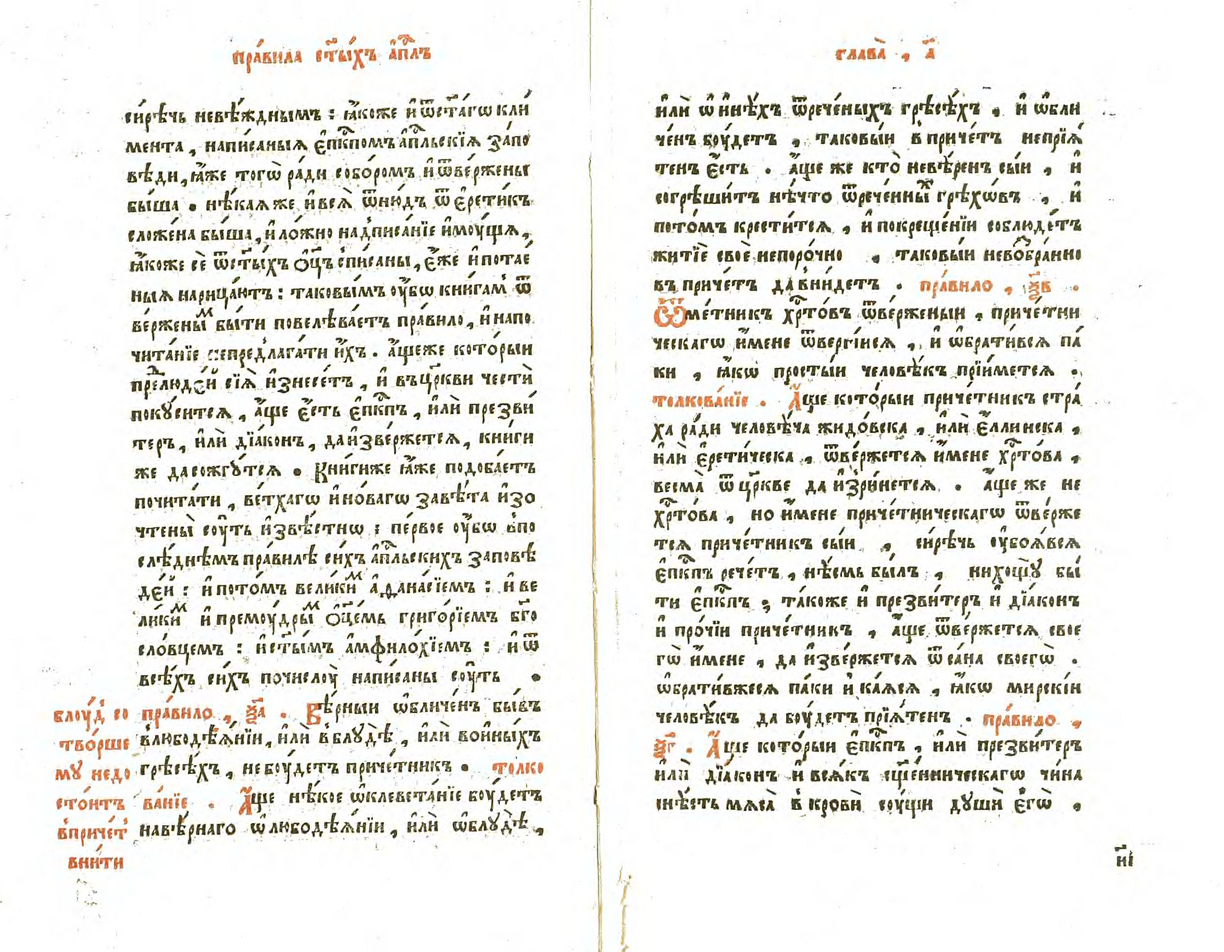 пра́вила ст҃ы́хъ а҆пⷭ҇лъ
си́рѣчь невѣ́жднымъ : ꙗ҆́коже и҆ ѿст҃а́гѡ кли́
мента , написаныѧ є҆пⷭ҇кпомъ а҆пⷭ҇льскїѧ за́по
вѣди , ꙗ҆́же тогѡ̀ ра́ди собо́ромъ и҆ ѿве́ржены
бы́ша . нѣ́каѧ же и҆ всѧ̀ ѿню́дъ ѿ є҆рети́къ
сложена бы́ша , и҆ ло́жно надписа́нїе и҆мꙋ́щѧ ,
ꙗ҆́коже сѐ ѿст҃ы́хъ ѻ҆ц҃ъ списаны , є҆́же и҆ потае
ныѧ нарица́ютъ : таковы́мъ ᲂу҆́бѡ кни́гам ѿ
ве́ржены̑мъ бы́ти повелѣва́етъ пра́вило , и҆ на по
чита́нїе непредлага́ти и҆́хъ . а҆́щеже кото́рыи
прⷣелюде́й сїѧ̀ и҆знесе́тъ , и҆ въ цр҃кви честѝ
покꙋси́тсѧ , а҆́ще є҆́сть є҆пⷭ҇кпъ , и҆лѝ презви́
теръ , и҆лѝ дїа́конъ , да и҆зве́ржетсѧ , кни́ги
же да сожгꙋ́тсѧ . Кни́гиже ꙗ҆́же подоба́етъ
почита́ти , ве́тхагѡ и҆ но́вагѡ завѣ́та и҆зо
чтены̀ сꙋ́ть и҆звѣ́стнѡ : пе́рвое ᲂу҆́бѡ впо
слѣ́днѣмъ пра́вилѣ си́хъ а҆пⷭ҇льскихъ за́повѣ
де́й : и҆ пото́мъ вели́киⷨ а҆ѳана́сїемъ : и҆ ве
ли́киⷨ и҆ премꙋ́дрыⷨ ѻ҆ц҃емъ григо́рїемъ бг҃о
сло́вцемъ : и҆ ст҃ы́мъ а҆мфило́хїемъ : и҆ ѿ
всѣ́хъ си́хъ почислꙋ̀ написаны сꙋ́ть .
пра́вило , ѯ҃а . Вѣ́рныи ѡ҆бличе́нъ бы́въ
влюбодѣѧ́нїи , и҆лѝ в блꙋ́дѣ , и҆лѝ во и҆ны́хъ
грѣсѣ́хъ , не бꙋ́детъ приче́тникъ . толко
ва́нїе . А҆́ще нѣ́кое ѡ҆клевета́нїе бꙋ́детъ
на вѣ́рнаго ѡ҆ любодѣѧ́нїи , и҆лѝ ѡ҆ блꙋ́дѣ ,
блꙋ́д со
тво́рше
мꙋ недо
сто́итъ
в приче́т
вни́ти
глава̀ , а҃
и҆лѝ ѡ҆ и҆нѣ́хъ ѿрече́ныхъ грѣсѣ́хъ , и҆ ѡ҆бли
че́нъ бꙋ́детъ , таковы́и в при́четъ непрїѧ́
тенъ є҆́сть . а҆́ще же кто̀ невѣ́ренъ сы́и , и҆
согрѣши́тъ нѣ́что ѿрече́нныⷯ грѣхѡ́въ , и҆
пото́мъ крести́тсѧ , и҆ по креще́нїи соблюде́тъ
житїѐ своѐ непоро́чно , таковы́и невозбра́нно
въ при́четъ да вни́детъ . пра́вило , ѯ҃в .
Ѿме́тникъ хрⷭ҇то́въ ѿве́рженыи , приче́тни
ческагѡ и҆́мене ѿве́ргійсѧ , и҆ ѡ҆брати́всѧ па́
ки , ꙗ҆́кѡ просты́и человѣ́къ прїи́метсѧ .
толкова́нїе . А҆́ще кото́рыи приче́тникъ стра́
ха ра́ди человѣ́ча жидо́вска , и҆лѝ є҆́ллинска ,
и҆лѝ є҆рети́ческа , ѿве́ржетсѧ и҆́мене хрⷭ҇то́ва ,
весма̀ ѿ цр҃кве да и҆зри́нетсѧ . а҆́ще же не
хрⷭ҇то́ва , но и҆́мене приче́тническагѡ ѿве́рже
тсѧ приче́тникъ сы́и , си́рѣчь ᲂу҆боѧ́всѧ
є҆пⷭ҇кпъ рече́тъ , нѣ́смь бы́лъ , ни хощꙋ̀ бы́
ти є҆пⷭ҇кпъ , та́коже и҆ презви́теръ и҆ дїа́конъ
и҆ про́чїи приче́тникъ , а҆́ще ѿве́ржетсѧ свое
гѡ̀ и҆́мене , да и҆зве́ржетсѧ ѿ са́на своегѡ̀ .
ѡ҆брати́вжесѧ па́ки и҆ ка́ѧсѧ , ꙗ҆́кѡ мирскі́и
человѣ́къ да бꙋ́детъ прїѧ́тенъ . пра́вило ,
ѯ҃г . А҆́ще кото́рыи є҆пⷭ҇кпъ , и҆лѝ презви́теръ
и҆лѝ дїа́конъ и҆ всѧ́къ сщ҃е́нническагѡ чи́на
снѣ́сть мѧса̀ в кро́ви сꙋ́щи дꙋшѝ є҆гѡ̀ ,
н҃і